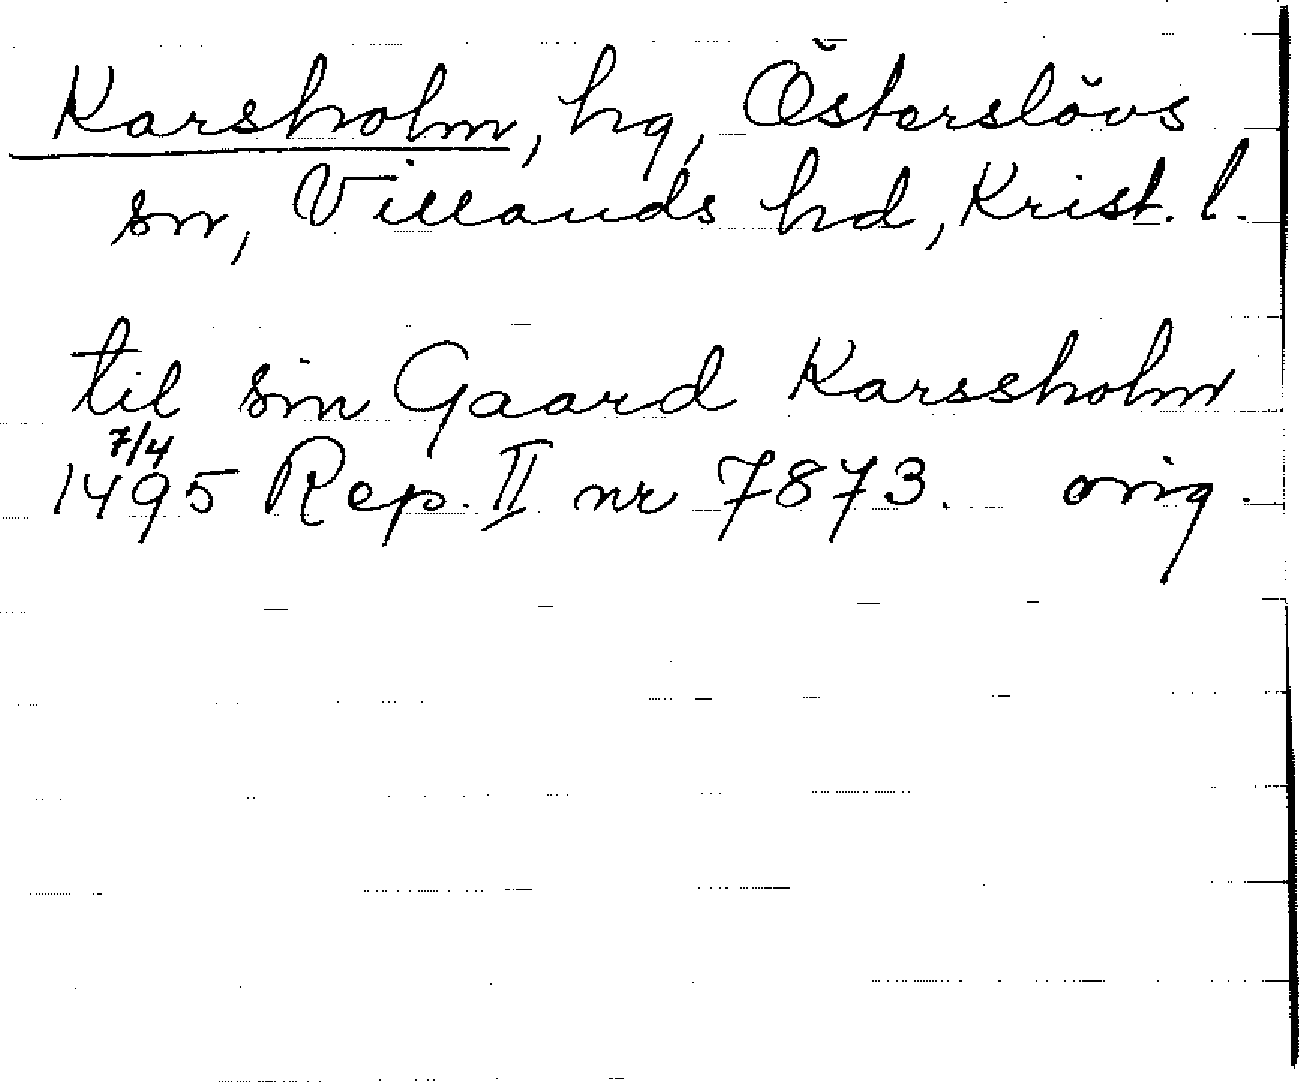 Karsholm, hg, Österslövs
sn, Villands hd, Krist. l.
til sin Gaard Karssholm
7/4
1495 Rep. II nr 7873. orig.